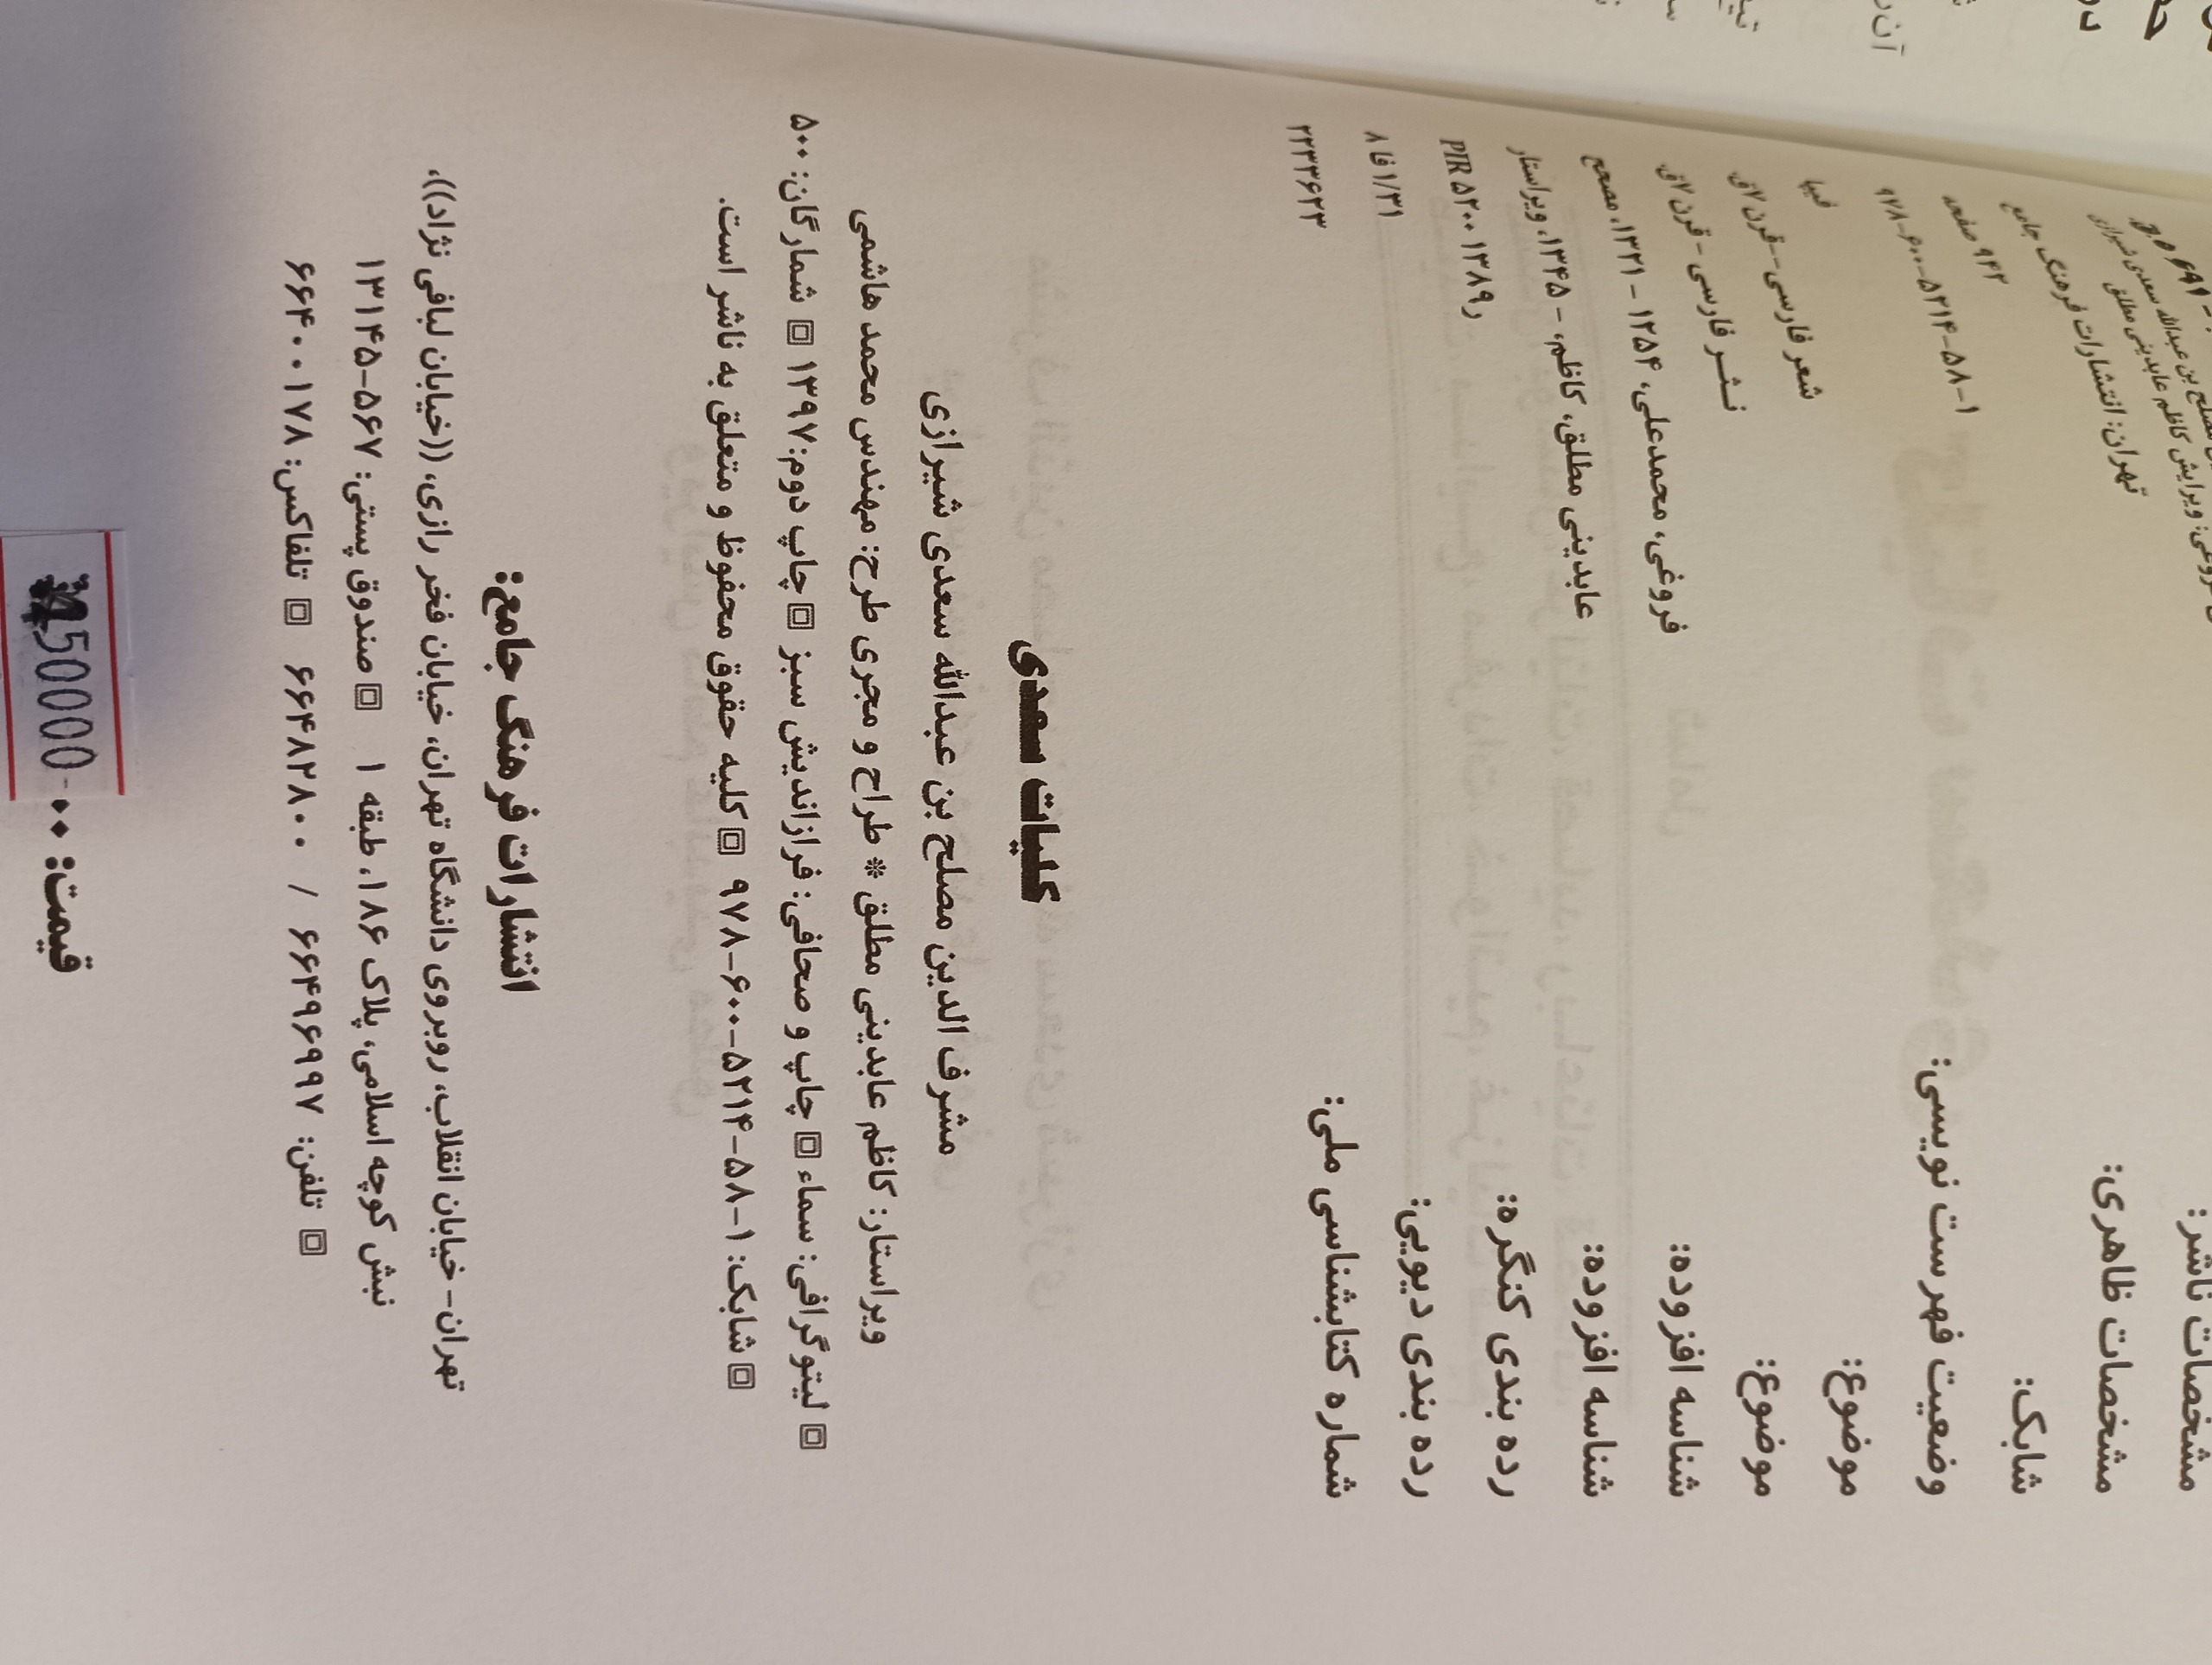 مشخصات ناشر: تهران: انتشارات فرهنگ جامع
مشخصات ظاهری: ۹۴۲ صفحه
شابک: ۹۷۸-۶۰۰-۵۲۱۴-۵۸-۱
وضعیت فهرست نویسی: فیپا
موضوع: شعر فارسی--قرن ۷ق
موضوع: نثر فارسی - قرن ۷ق
شناسه افزوده: فروغی، محمدعلی، ۱۲۵۴ - ۱۳۲۱، مصحح
شناسه افزوده: عابدینی مطلق، کاظم، - ۱۳۴۵، ویراستار
رده بندی کنگره: PIR ۵۲۰۰ ۱۳۸۹ر
رده بندی دیویی: ۱/۳۱ فا ۸
شماره کتابشناسی ملی: ۲۲۳۳۶۲۳
کلیات سعدی
مشرف الدین مصلح بن عبدالله سعدی شیرازی
ویراستار: کاظم عابدینی مطلق * طراح و مجری طرح: مهندس محمد هاشمی
لیتوگرافی: سماء چاپ و صحافی: فرازاندیش سبز چاپ دوم: ۱۳۹۷ شمارگان: ۵۰۰
شابک: ۱-۵۸-۵۲۱۴-۶۰۰-۹۷۸ کلیه حقوق محفوظ و متعلق به ناشر است.
انتشارات فرهنگ جامع:
تهران- خیابان انقلاب، روبروی دانشگاه تهران، خیابان فخر رازی، ((خیابان لبافی نژاد))،
نبش کوچه اسلامی، پلاک ۱۸۶، طبقه ۱ صندوق پستی: ۵۶۷-۱۳۱۴۵
تلفن: ۶۶۴۹۶۹۹۷ / ۶۶۴۸۲۸۰۰ تلفاکس: ۶۶۴۰۰۱۷۸
قیمت: ۰۰ 50000